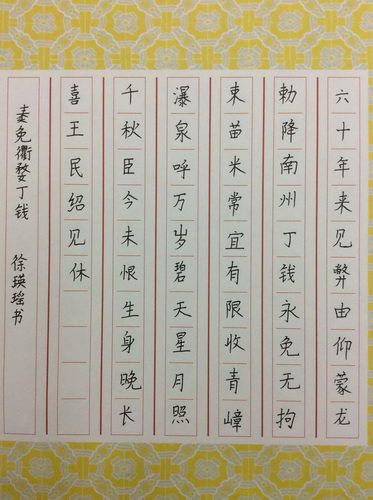 六十年来见弊由仰蒙龙
勅降南州丁钱永免无拘
束苗米常宜有限收青嶂
瀑泉呼万岁碧天星月照
千秋臣今未恨生身晚长
喜王民绍见休
奏免衢婺丁钱 徐瑛瑶书